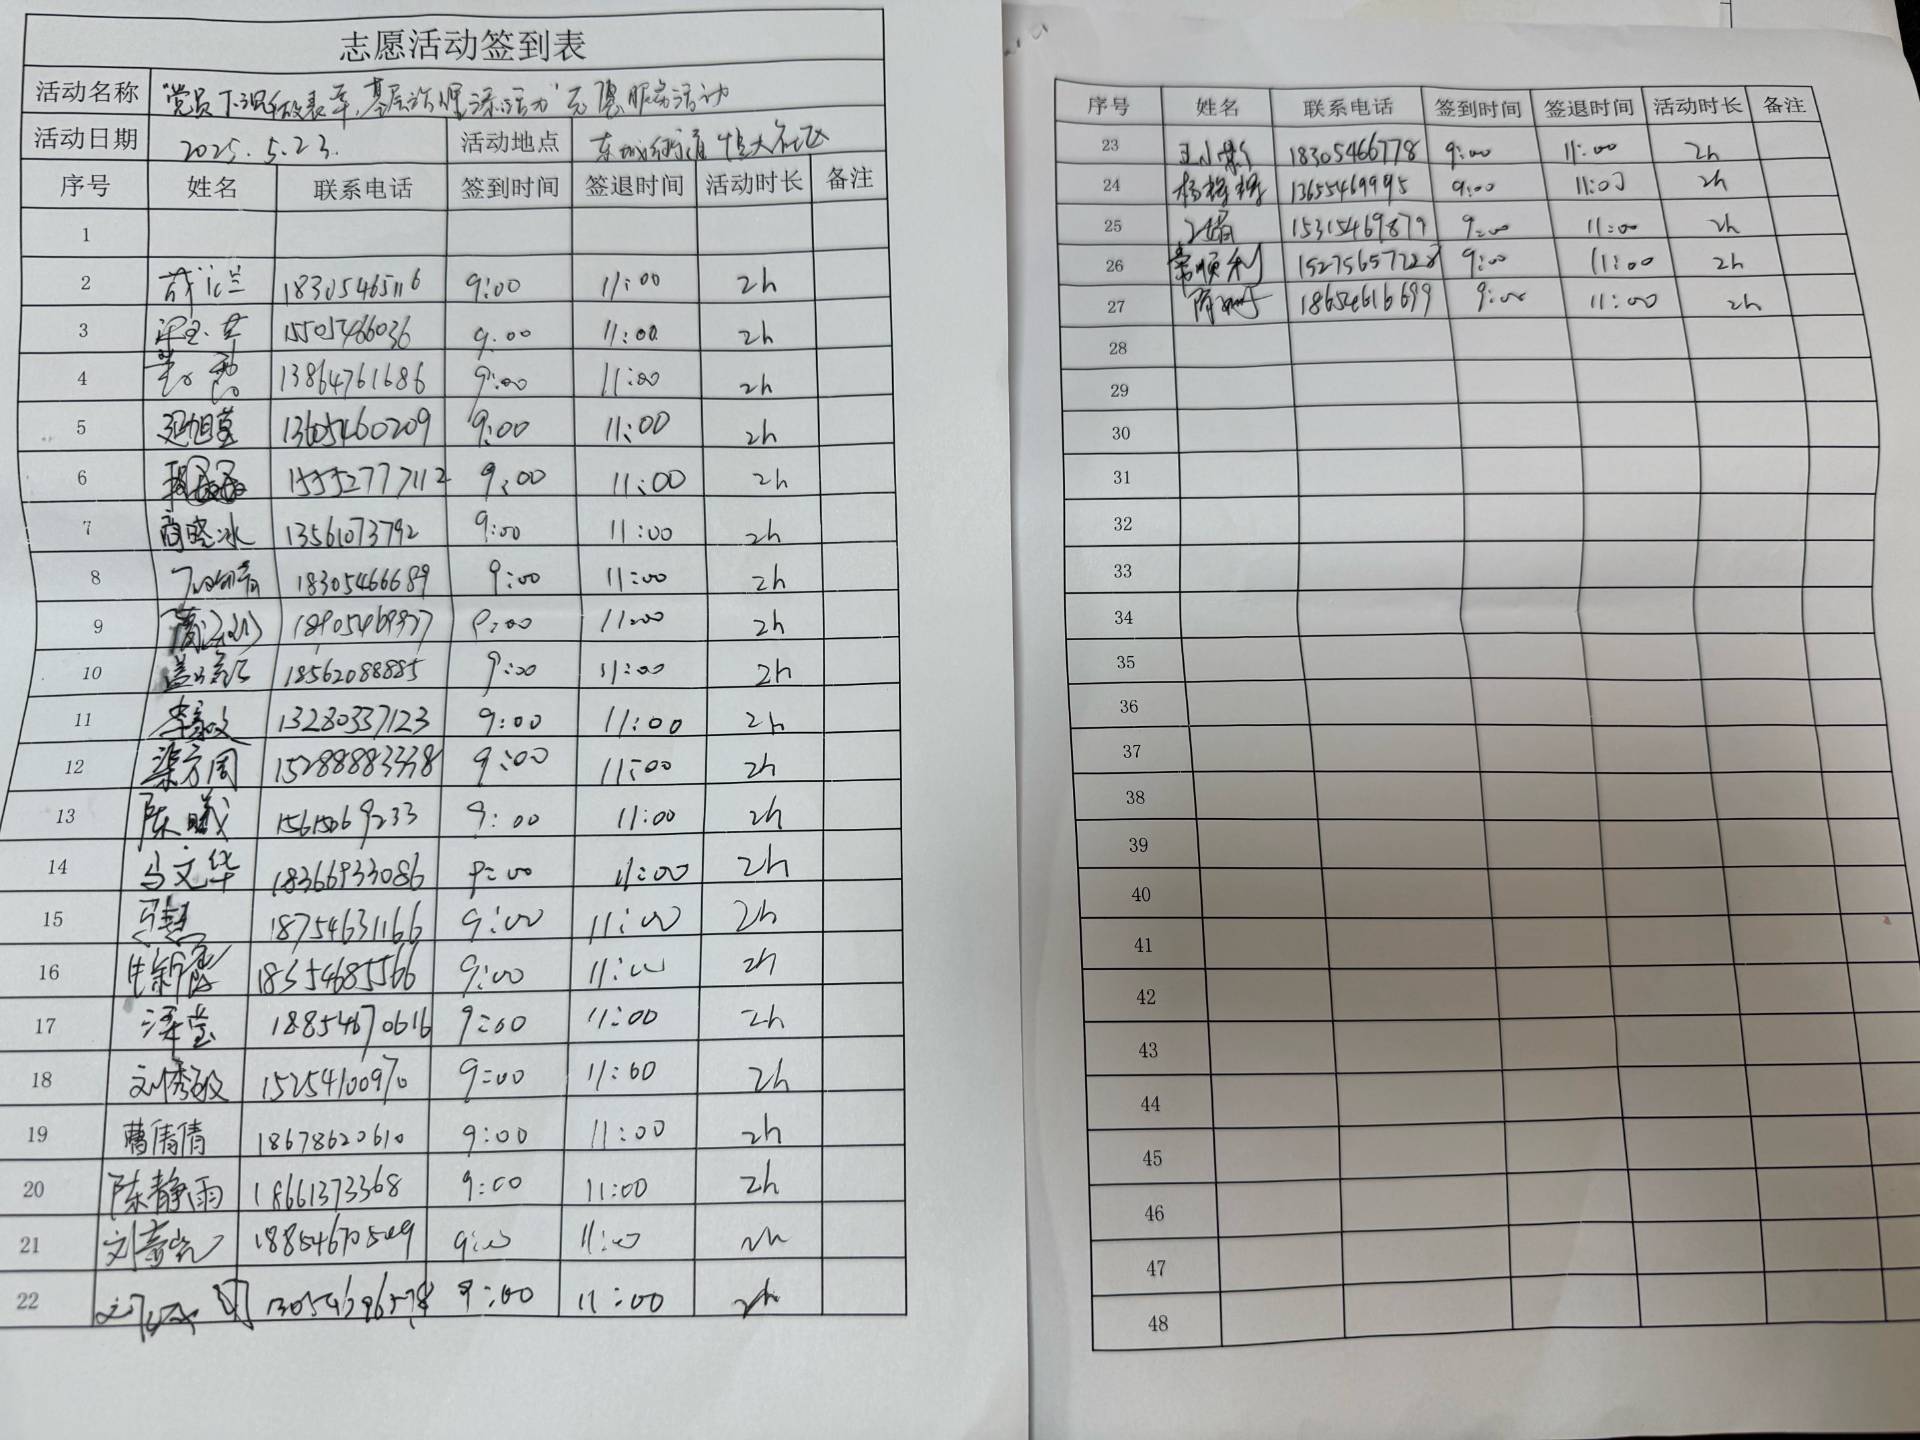 志愿活动签到表
活动名称 "党员下沉作表率,基层治理添活力"志愿服务活动
活动日期 2025.5.23. 活动地点 东城街道恒大社区
序号 姓名 联系电话 签到时间 签退时间 活动时长 备注
1
2 18305465116 9:00 11:00 2h
3 15505466036 9:00 11:00 2h
4 13864761686 9:00 11:00 2h
5 13605460209 9:00 11:00 2h
6 15552777112 9:00 11:00 2h
7 商晓冰 13561073792 9:00 11:00 2h
8 18305466689 9:00 11:00 2h
9 18905469977 9:00 11:00 2h
10 18562088885 9:00 11:00 2h
11 13280337123 9:00 11:00 2h
12 梁方周 15288883338 9:00 11:00 2h
13 陈曦 15615069233 9:00 11:00 2h
14 马文华 18366933086 9:00 11:00 2h
15 马慧 18754631166 9:00 11:00 2h
16 18354685566 9:00 11:00 2h
17 梁莹 18854670616 9:00 11:00 2h
18 刘秀敏 15254100970 9:00 11:00 2h
19 曹倩倩 18678620610 9:00 11:00 2h
20 陈静雨 18661373368 9:00 11:00 2h
21 18854670509 9:00 11:00 2h
22 9:00 11:00 2h
序号 姓名 联系电话 签到时间 签退时间 活动时长 备注
23 王小彩 18305466778 9:00 11:00 2h
24 杨梅梅 13655469995 9:00 11:00 2h
25 15315469879 9:00 11:00 2h
26 常顺利 15275657728 9:00 11:00 2h
27 18654616699 9:00 11:00 2h
28
29
30
31
32
33
34
35
36
37
38
39
40
41
42
43
44
45
46
47
48